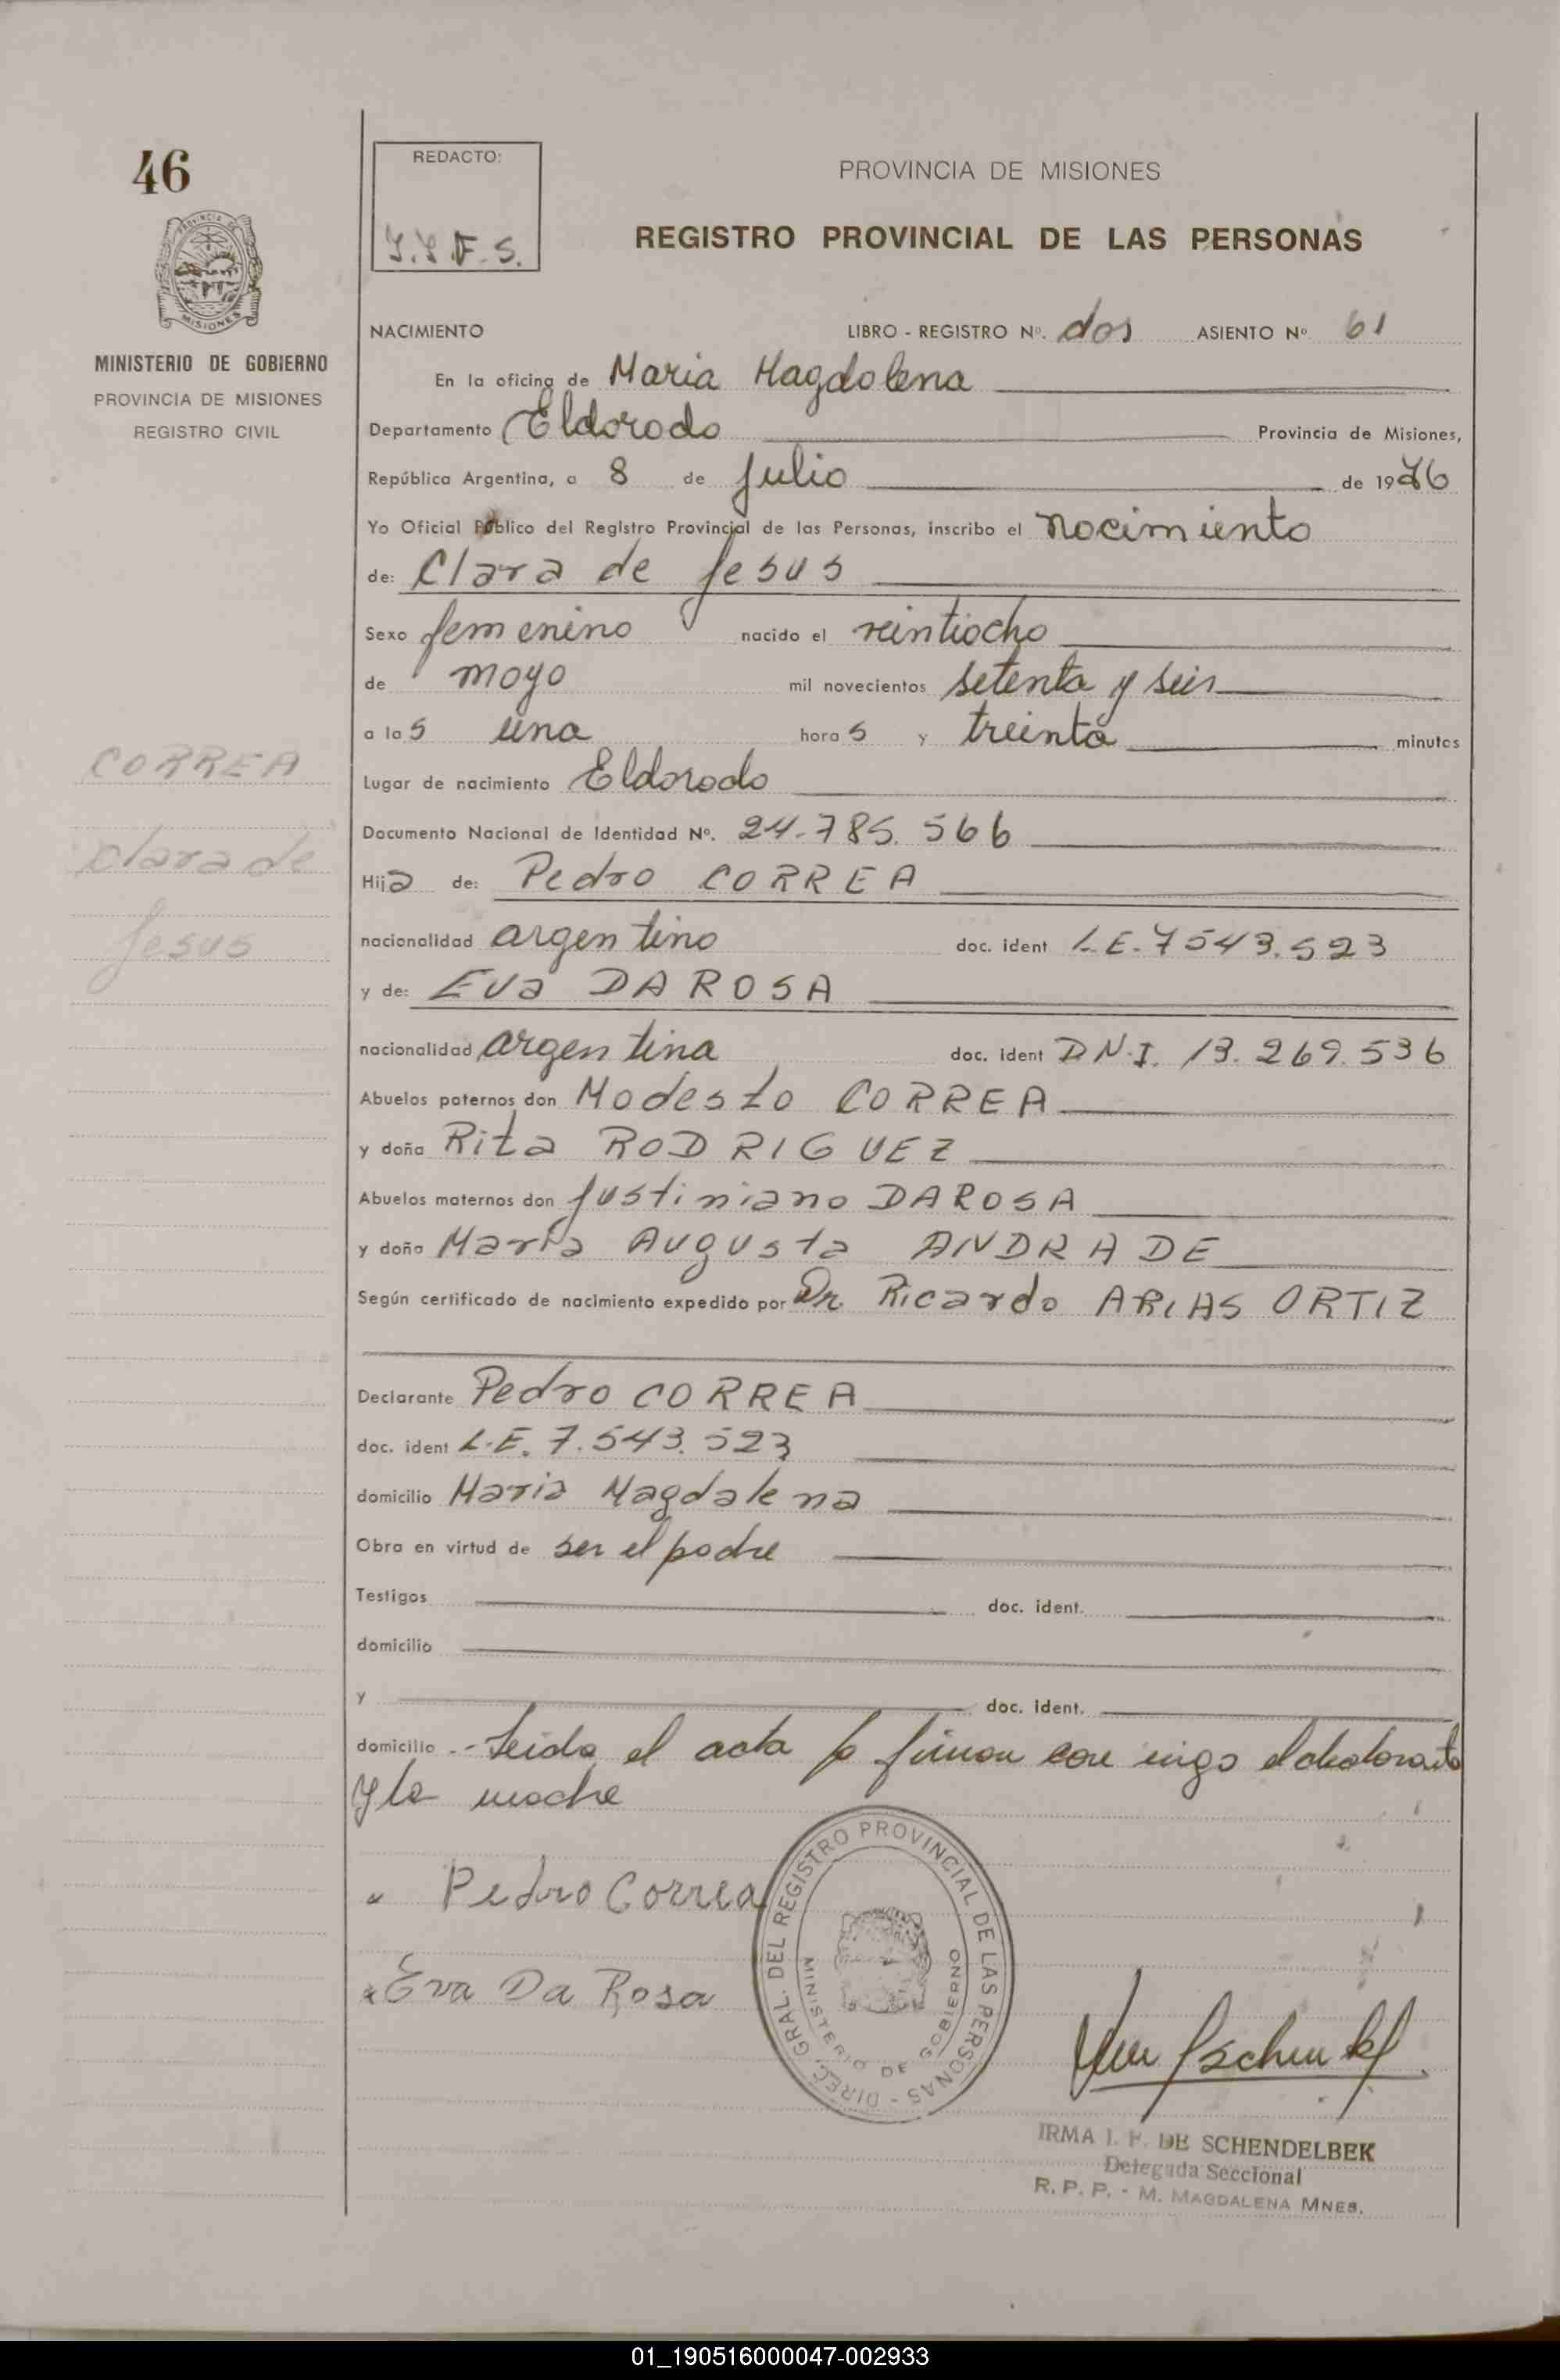 46
REDACTO:
I.I.F.S.
PROVINCIA DE MISIONES
REGISTRO PROVINCIAL DE LAS PERSONAS
PROVINCIA DE
MISIONES
MINISTERIO DE GOBIERNO
PROVINCIA DE MISIONES
REGISTRO CIVIL
NACIMIENTO LIBRO - REGISTRO Nº. dos ASIENTO Nº 61
En la oficina de Maria Magdalena
Departamento Eldorado Provincia de Misiones,
República Argentina, a 8 de Julio de 1976
Yo Oficial Público del Registro Provincial de las Personas, inscribo el nacimiento
de: Clara de Jesus
Sexo femenino nacido el veintiocho
de mayo mil novecientos setenta y seis
a las una horas y treinta minutos
Lugar de nacimiento Eldorado
Documento Nacional de Identidad Nº. 24.785.566
Hija de: Pedro CORREA
nacionalidad argentino doc. ident L.E. 7543.523
y de: Eva DA ROSA
nacionalidad argentina doc. ident D.N.I. 13.269.536
Abuelos paternos don Modesto CORREA
y doña Rita RODRIGUEZ
Abuelos maternos don Justiniano DAROSA
y doña Maria Augusta ANDRADE
Según certificado de nacimiento expedido por Dr. Ricardo ARIAS ORTIZ
Declarante Pedro CORREA
doc. ident L.E. 7.543.523
domicilio Maria Magdalena
Obra en virtud de ser el padre
Testigos doc. ident.
domicilio
y doc. ident.
domicilio Leida el acta la firman con migo el declarante
y la madre
CORREA
Clara de
Jesus
Pedro Correa
Eva Da Rosa
DIREC. GRAL. DEL REGISTRO PROVINCIAL DE LAS PERSONAS -
MINISTERIO DE GOBIERNO
IRMA I. F. DE SCHENDELBEK
Delegada Seccional
R. P. P. - M. MAGDALENA MNES.
01_190516000047-002933